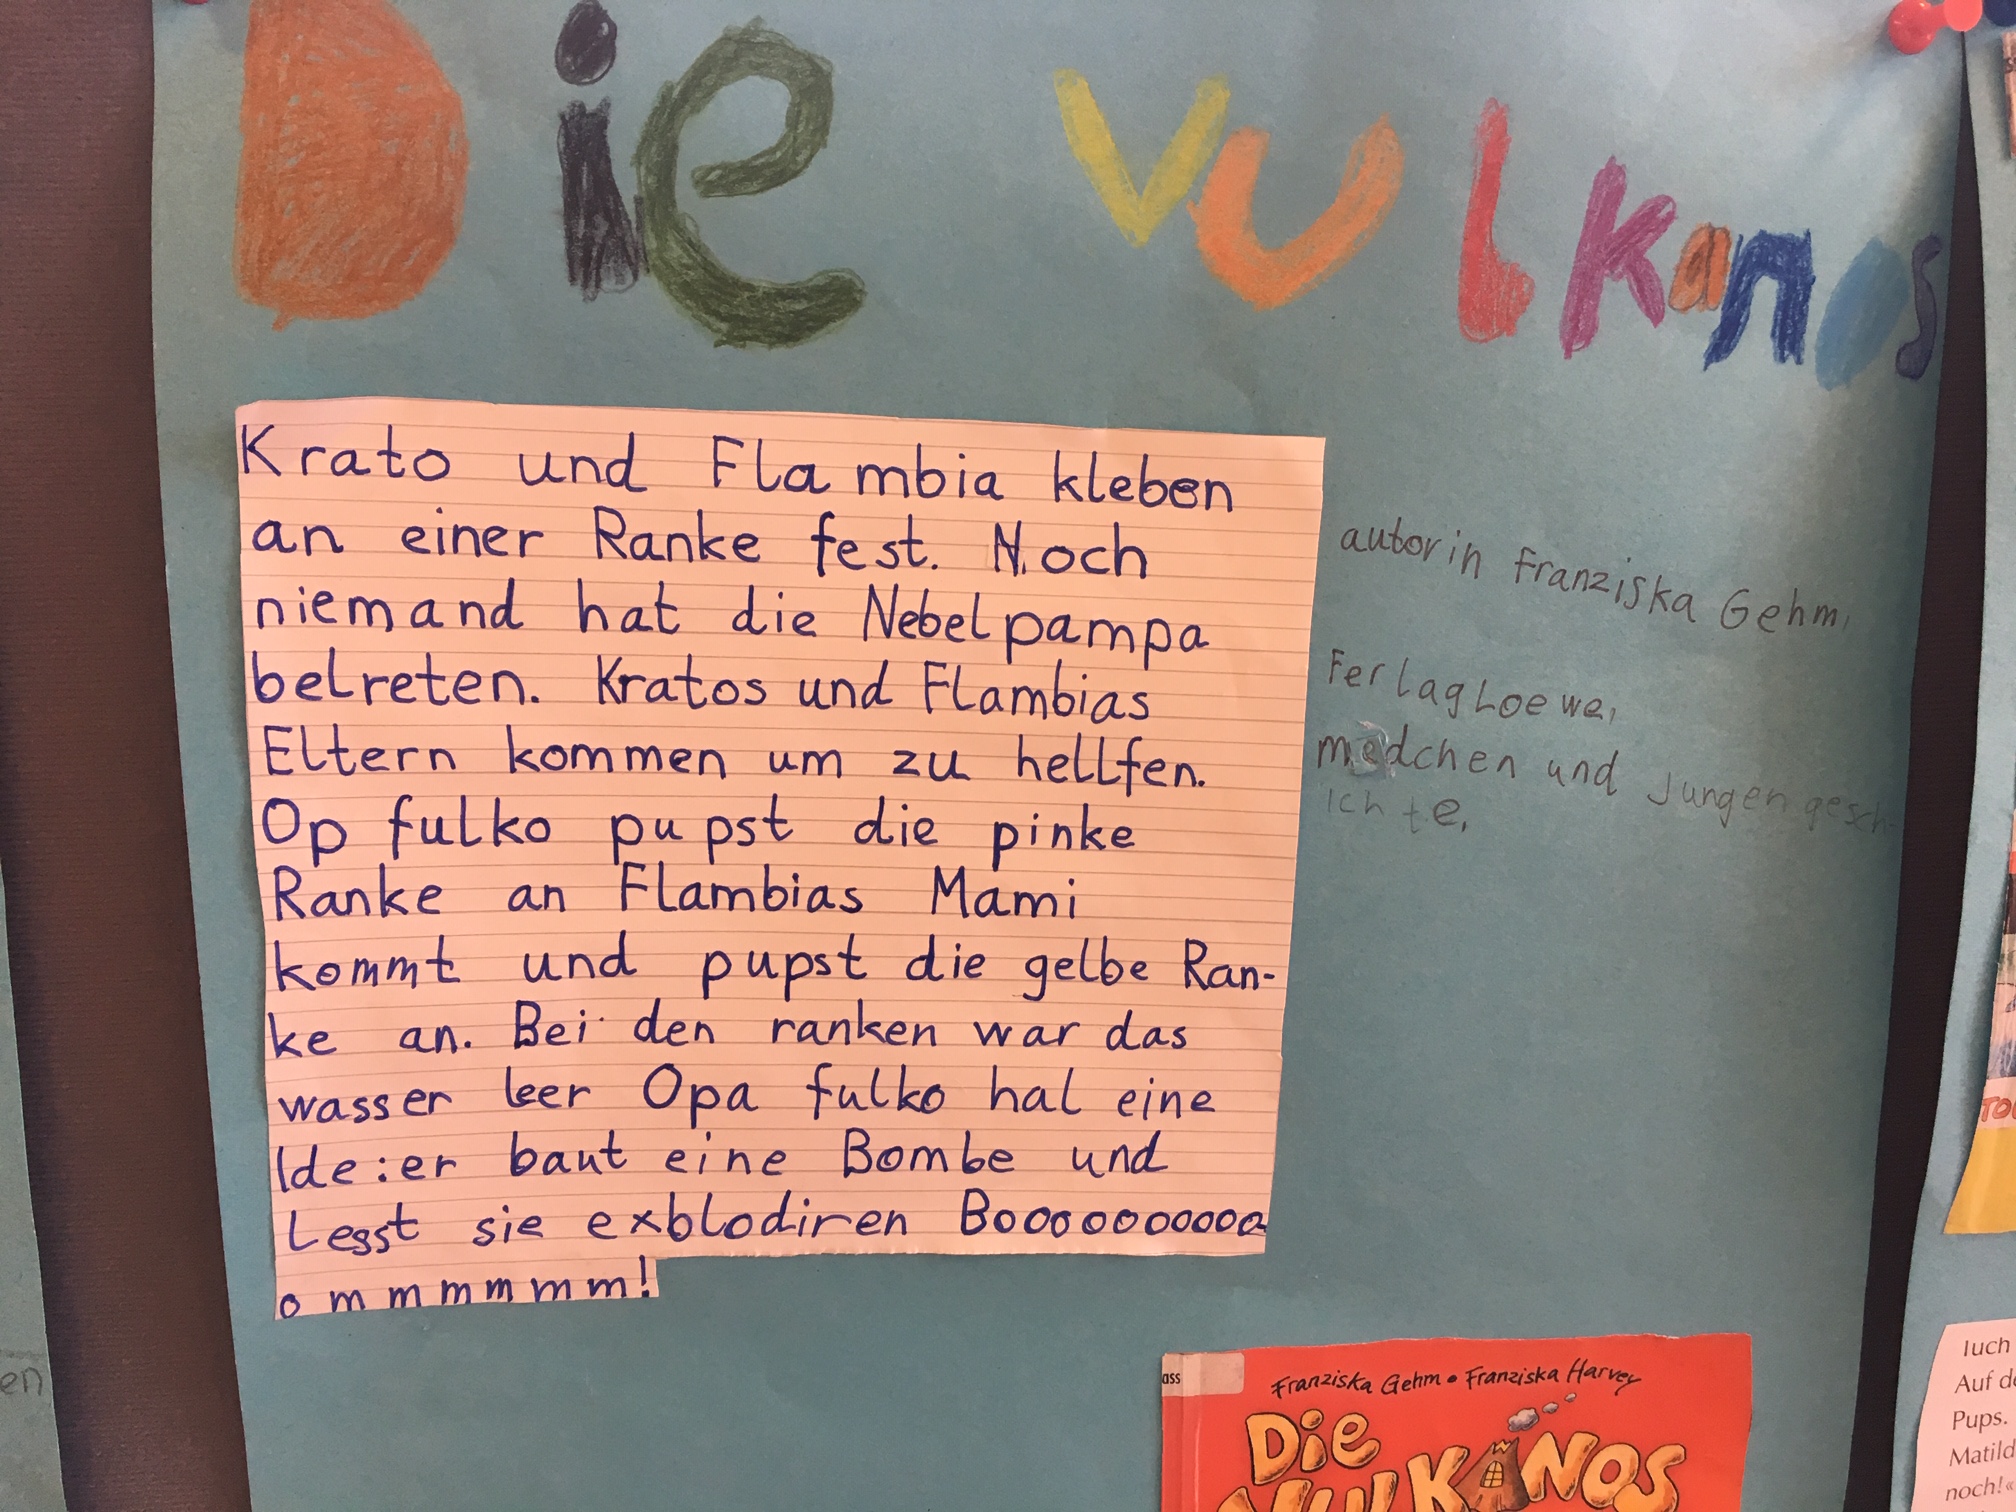 Die vulkanos
Krato und Flambia kleben
an einer Ranke fest. Noch
niemand hat die Nebelpampa
betreten. Kratos und Flambias
Eltern kommen um zu hellfen.
Op fulko pupst die pinke
Ranke an Flambias Mami
kommt und pupst die gelbe Ran-
ke an. Bei den ranken war das
wasser leer Opa fulko hat eine
Ide:er baut eine Bombe und
Lesst sie exblodiren Booooooooooo
ommmmmm!
autorin Franziska Gehm,
Ferlag Loewe,
medchen und jungen gesch-
ichte,
ass
Franziska Gehm • Franziska Harvey
Die
VULKANOS
en
TO
luch
Auf de
Pups.
Matild
noch!